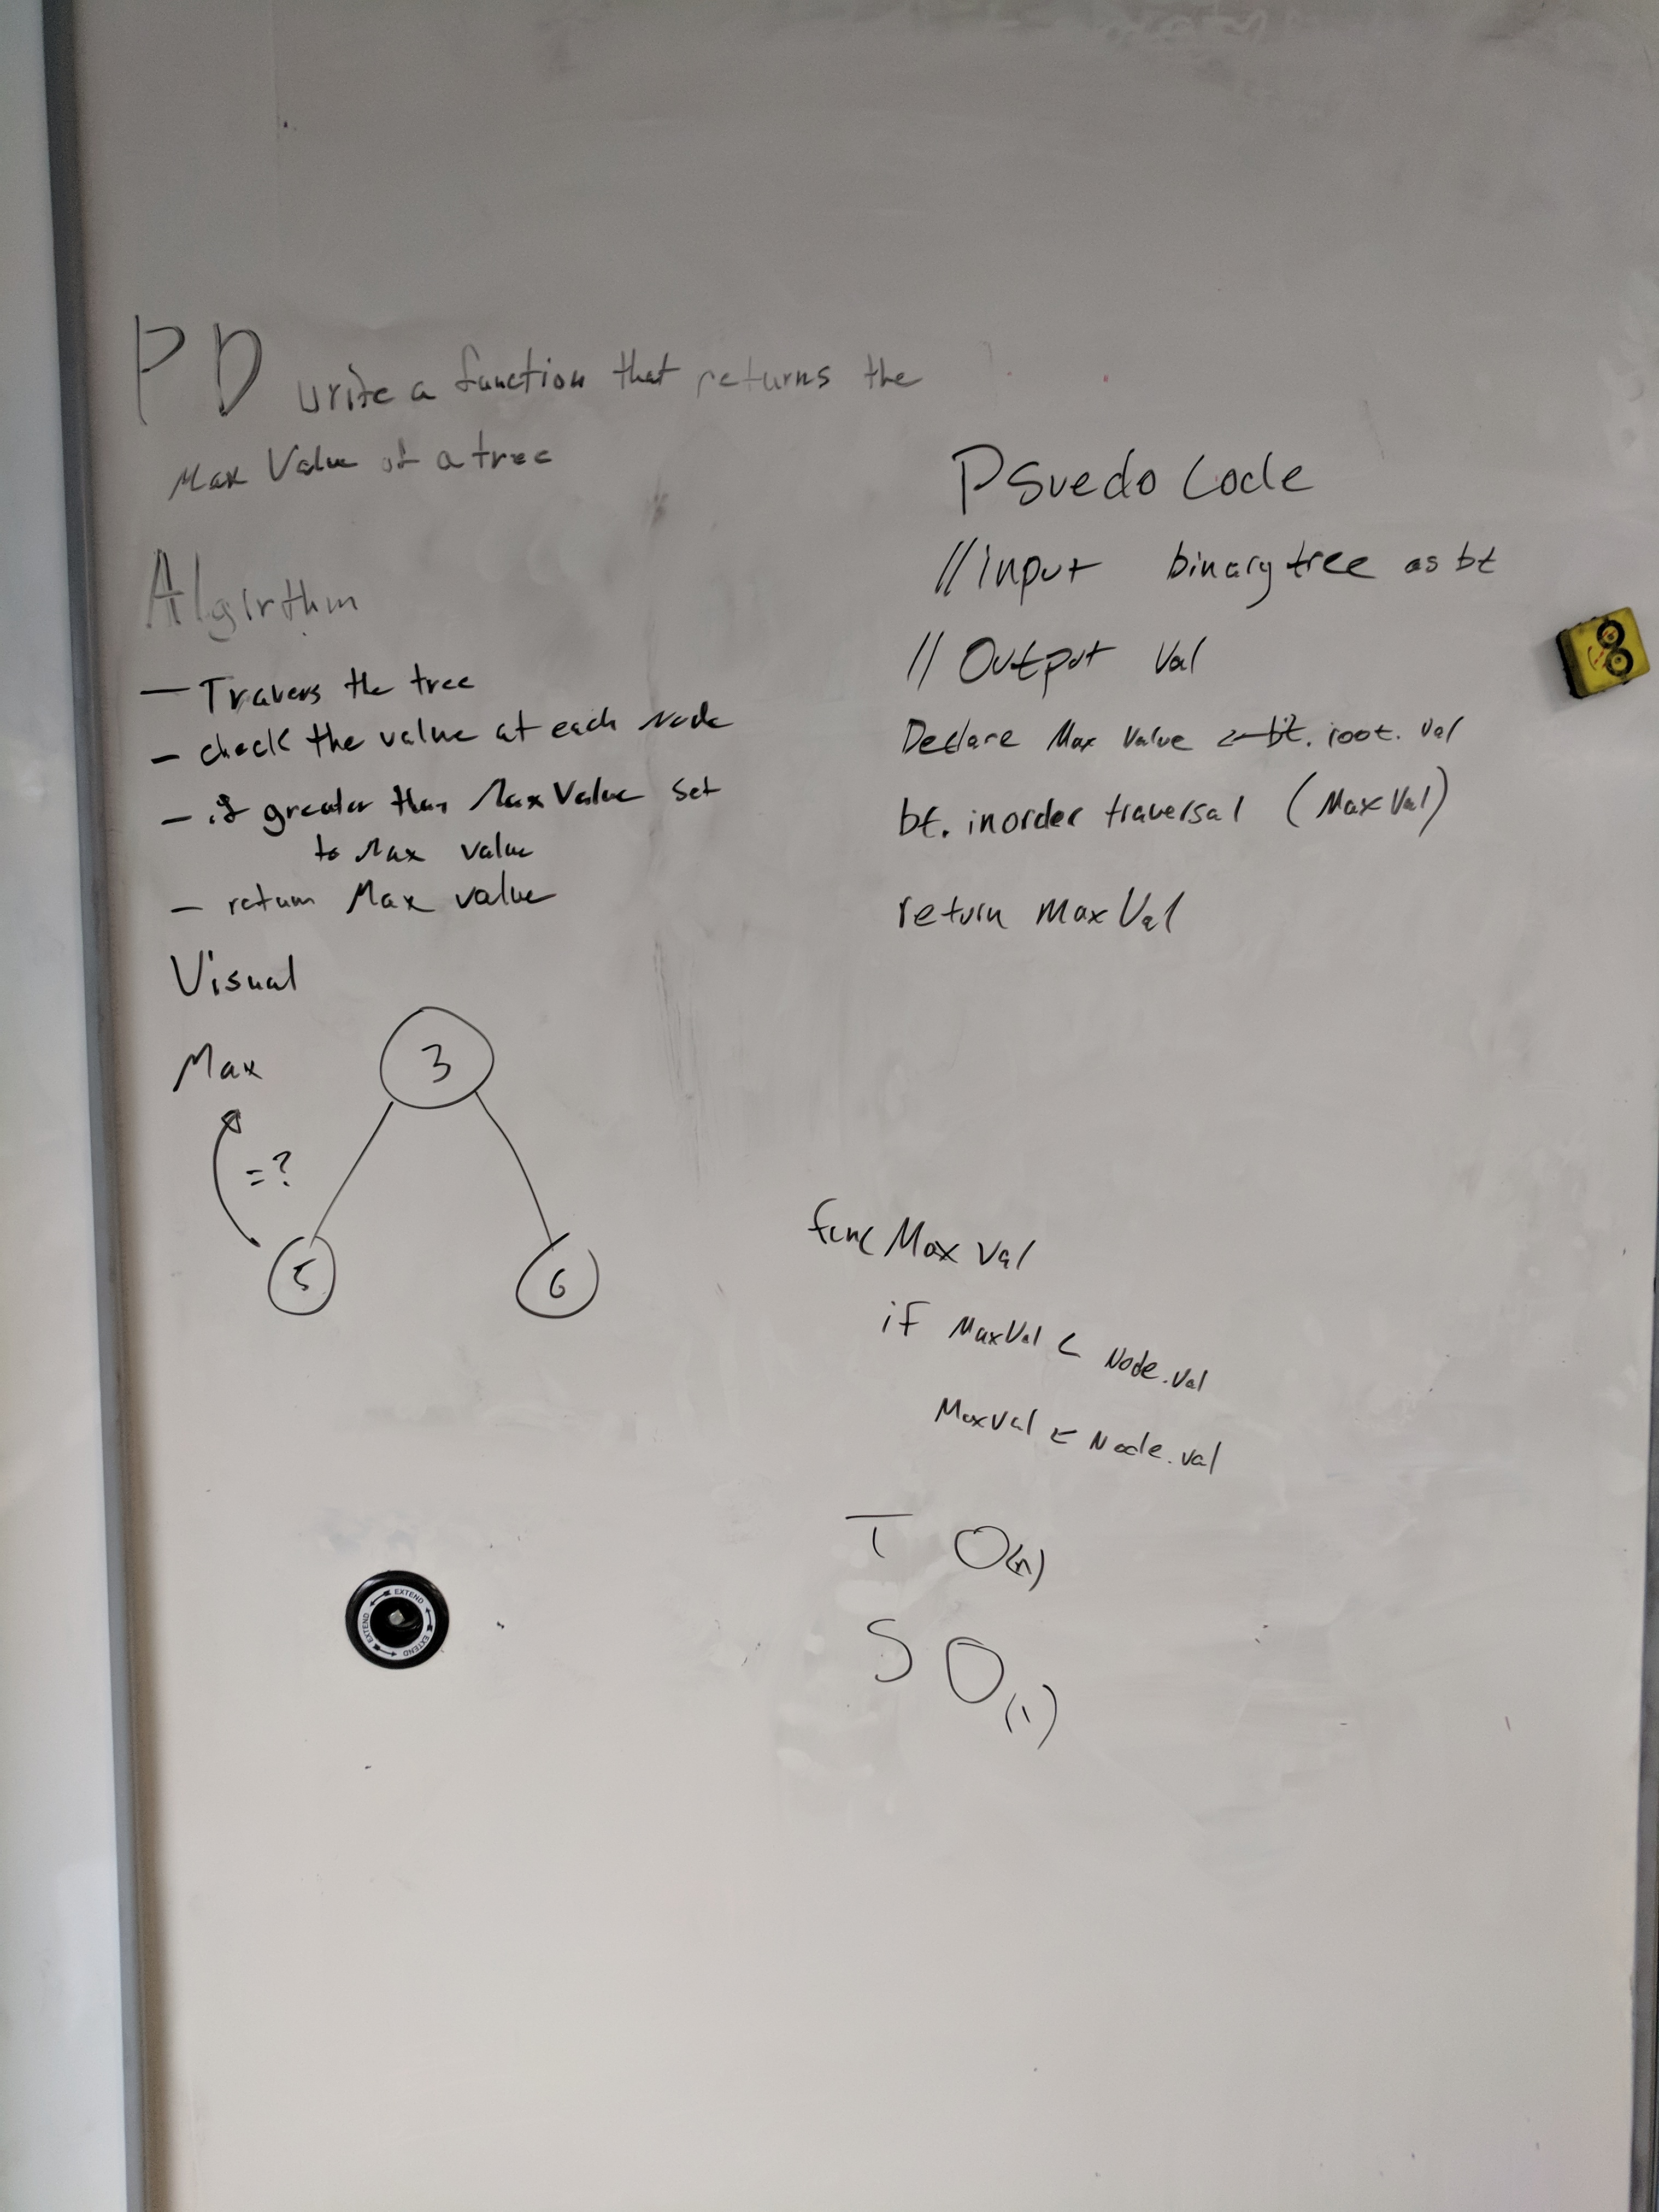 PD write a function that returns the
Max Value of a tree
Algirthm
— Travers the tree
- check the value at each Node
- if greater than Max Value set
to Max value
- return Max value
Visual
Max
3
=?
5
6
Psuedo Code
// input binary tree as bt
// Output Val
Declare Max Value ← bt. root. val
bt. inorder traversal (Max Val)
return Max Val
func Max Val
if MaxVal < Node.val
MaxVal ← Node.val
T O(n)
S O(1)
EXTEND EXTEND EXTEND EXTEND